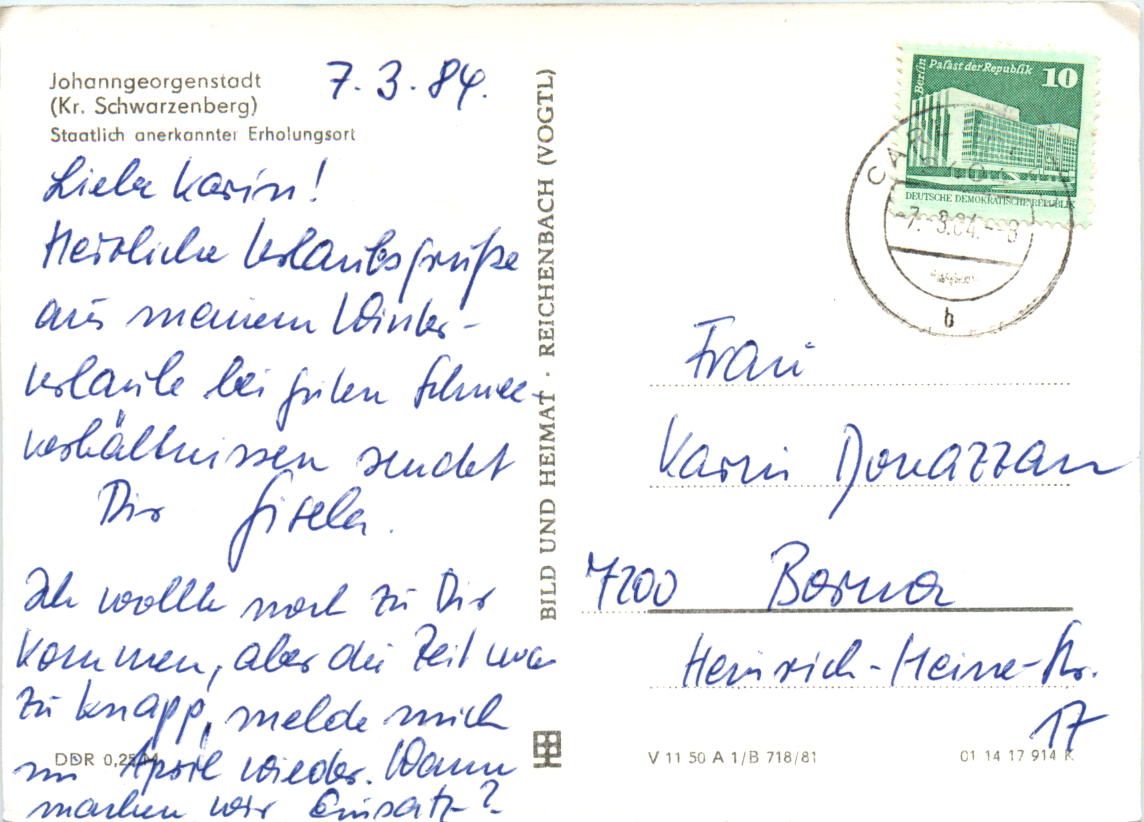 Johanngeorgenstadt
(Kr. Schwarzenberg)
Staatlich anerkannter Erholungsort
7.3.84.
Liebe Karin!
Herzliche Urlaubsgrüße
aus meinem Winter-
urlaube bei guten Schnee-
verhältnissen sendet
Dir Gisela.
Ich wollte noch zu Dir
kommen, aber die Zeit war
zu knapp, melde mich
im April wieder. Wann
machen wir Einsatz?
DDR 0,25 M
BILD UND HEIMAT · REICHENBACH (VOGTL)
Berlin
Palast der Republik
10
DEUTSCHE DEMOKRATISCHE REPUBLIK
7.-3.84.-8
b
Frau
Karin Donazzan
7200 Borna
Heinrich-Heine-Str.
17
V 11 50 A 1/B 718/81
01 14 17 914 K